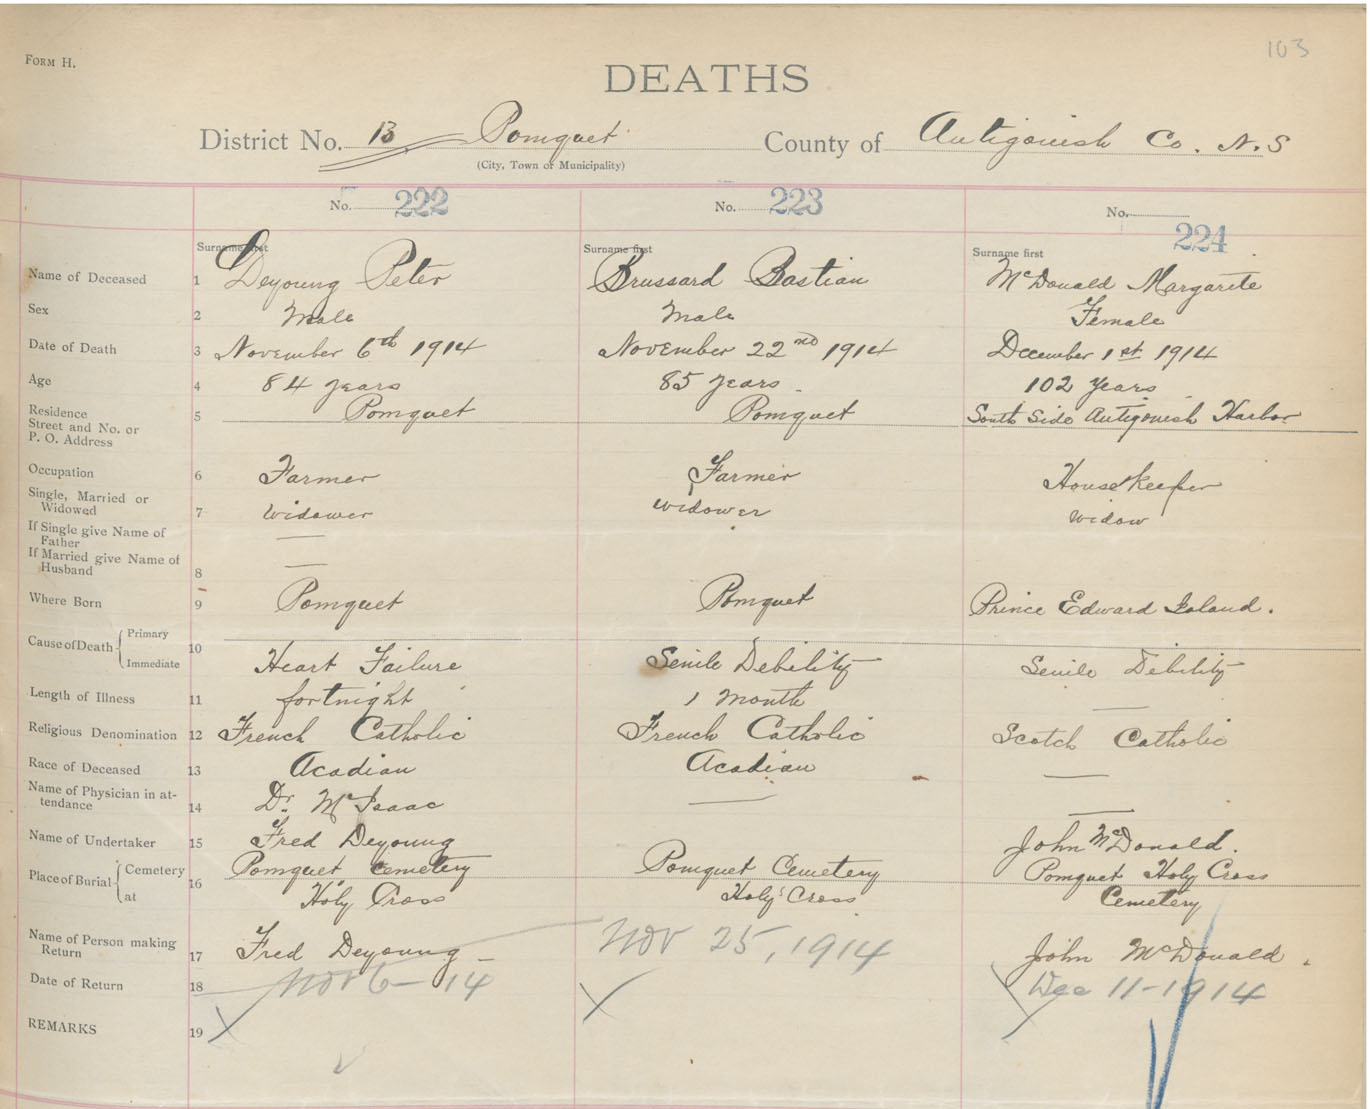 103
FORM H.
DEATHS
District No. 13 Pomquet County of Antigonish Co. N.S
(City, Town or Municipality)
No. 222 No. 223 No. 224
Surname first Surname first Surname first
Name of Deceased 1 Deyoung Peter Brussard Bastian McDonald Margarite
Sex 2 Male Male Female
Date of Death 3 November 6th 1914 November 22nd 1914 December 1st 1914
Age 4 84 years 85 years. 102 years
Residence
Street and No. or
P. O. Address 5 Pomquet Pomquet South Side Antigonish Harbor
Occupation 6 Farmer Farmer Housekeeper
Single, Married or
Widowed 7 Widower Widower Widow
If Single give Name of
Father —
If Married give Name of
Husband 8 —
Where Born 9 Pomquet Pomquet Prince Edward Island.
Cause of Death { Primary
Immediate 10 Heart Failure Senile Debility Senile Debility
Length of Illness 11 fortnight 1 Month —
Religious Denomination 12 French Catholic French Catholic Scotch Catholic
Race of Deceased 13 Acadian Acadian —
Name of Physician in at-
tendance 14 Dr. McIsaac — —
Name of Undertaker 15 Fred Deyoung John McDonald.
Place of Burial { Cemetery Pomquet Cemetery Pomquet Cemetery Pomquet Holy Cross
at 16 Holy Cross Holy Cross Cemetery
Name of Person making
Return 17 Fred Deyoung John McDonald.
Date of Return 18 Nov 6 - 14 Nov 25, 1914 Dec 11 - 1914
REMARKS 19